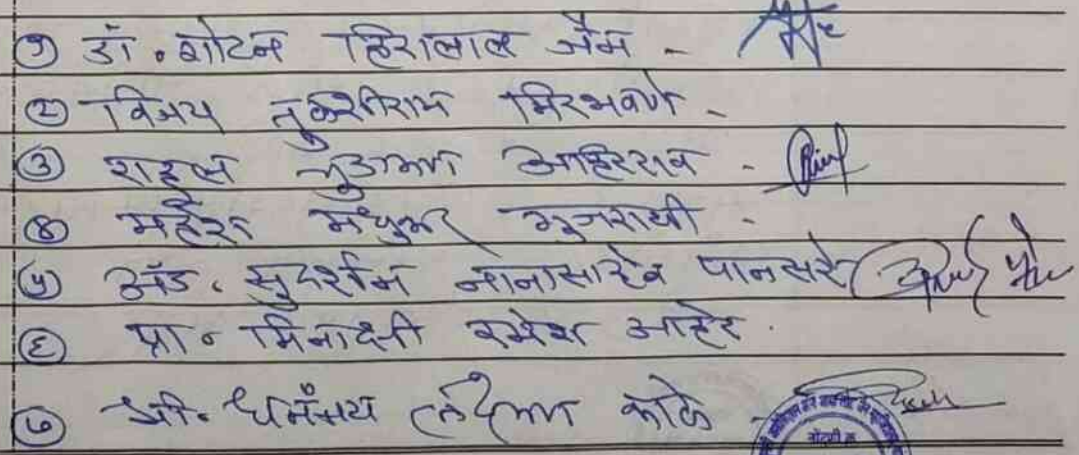 ① डॉ. गोटन हिरालाल जैन -
② विजय तुळशीराम मिरभवणे -
③ राहुल चुडामण अहिरराव -
④ महेश मधुकर गुजराथी -
⑤ अ‍ॅड. सुदर्शन नानासाहेब पानसरे
⑥ प्रा. मिनाक्षी रमेश आहेर.
⑦ श्री. धनंजय लक्ष्मण कोळे -